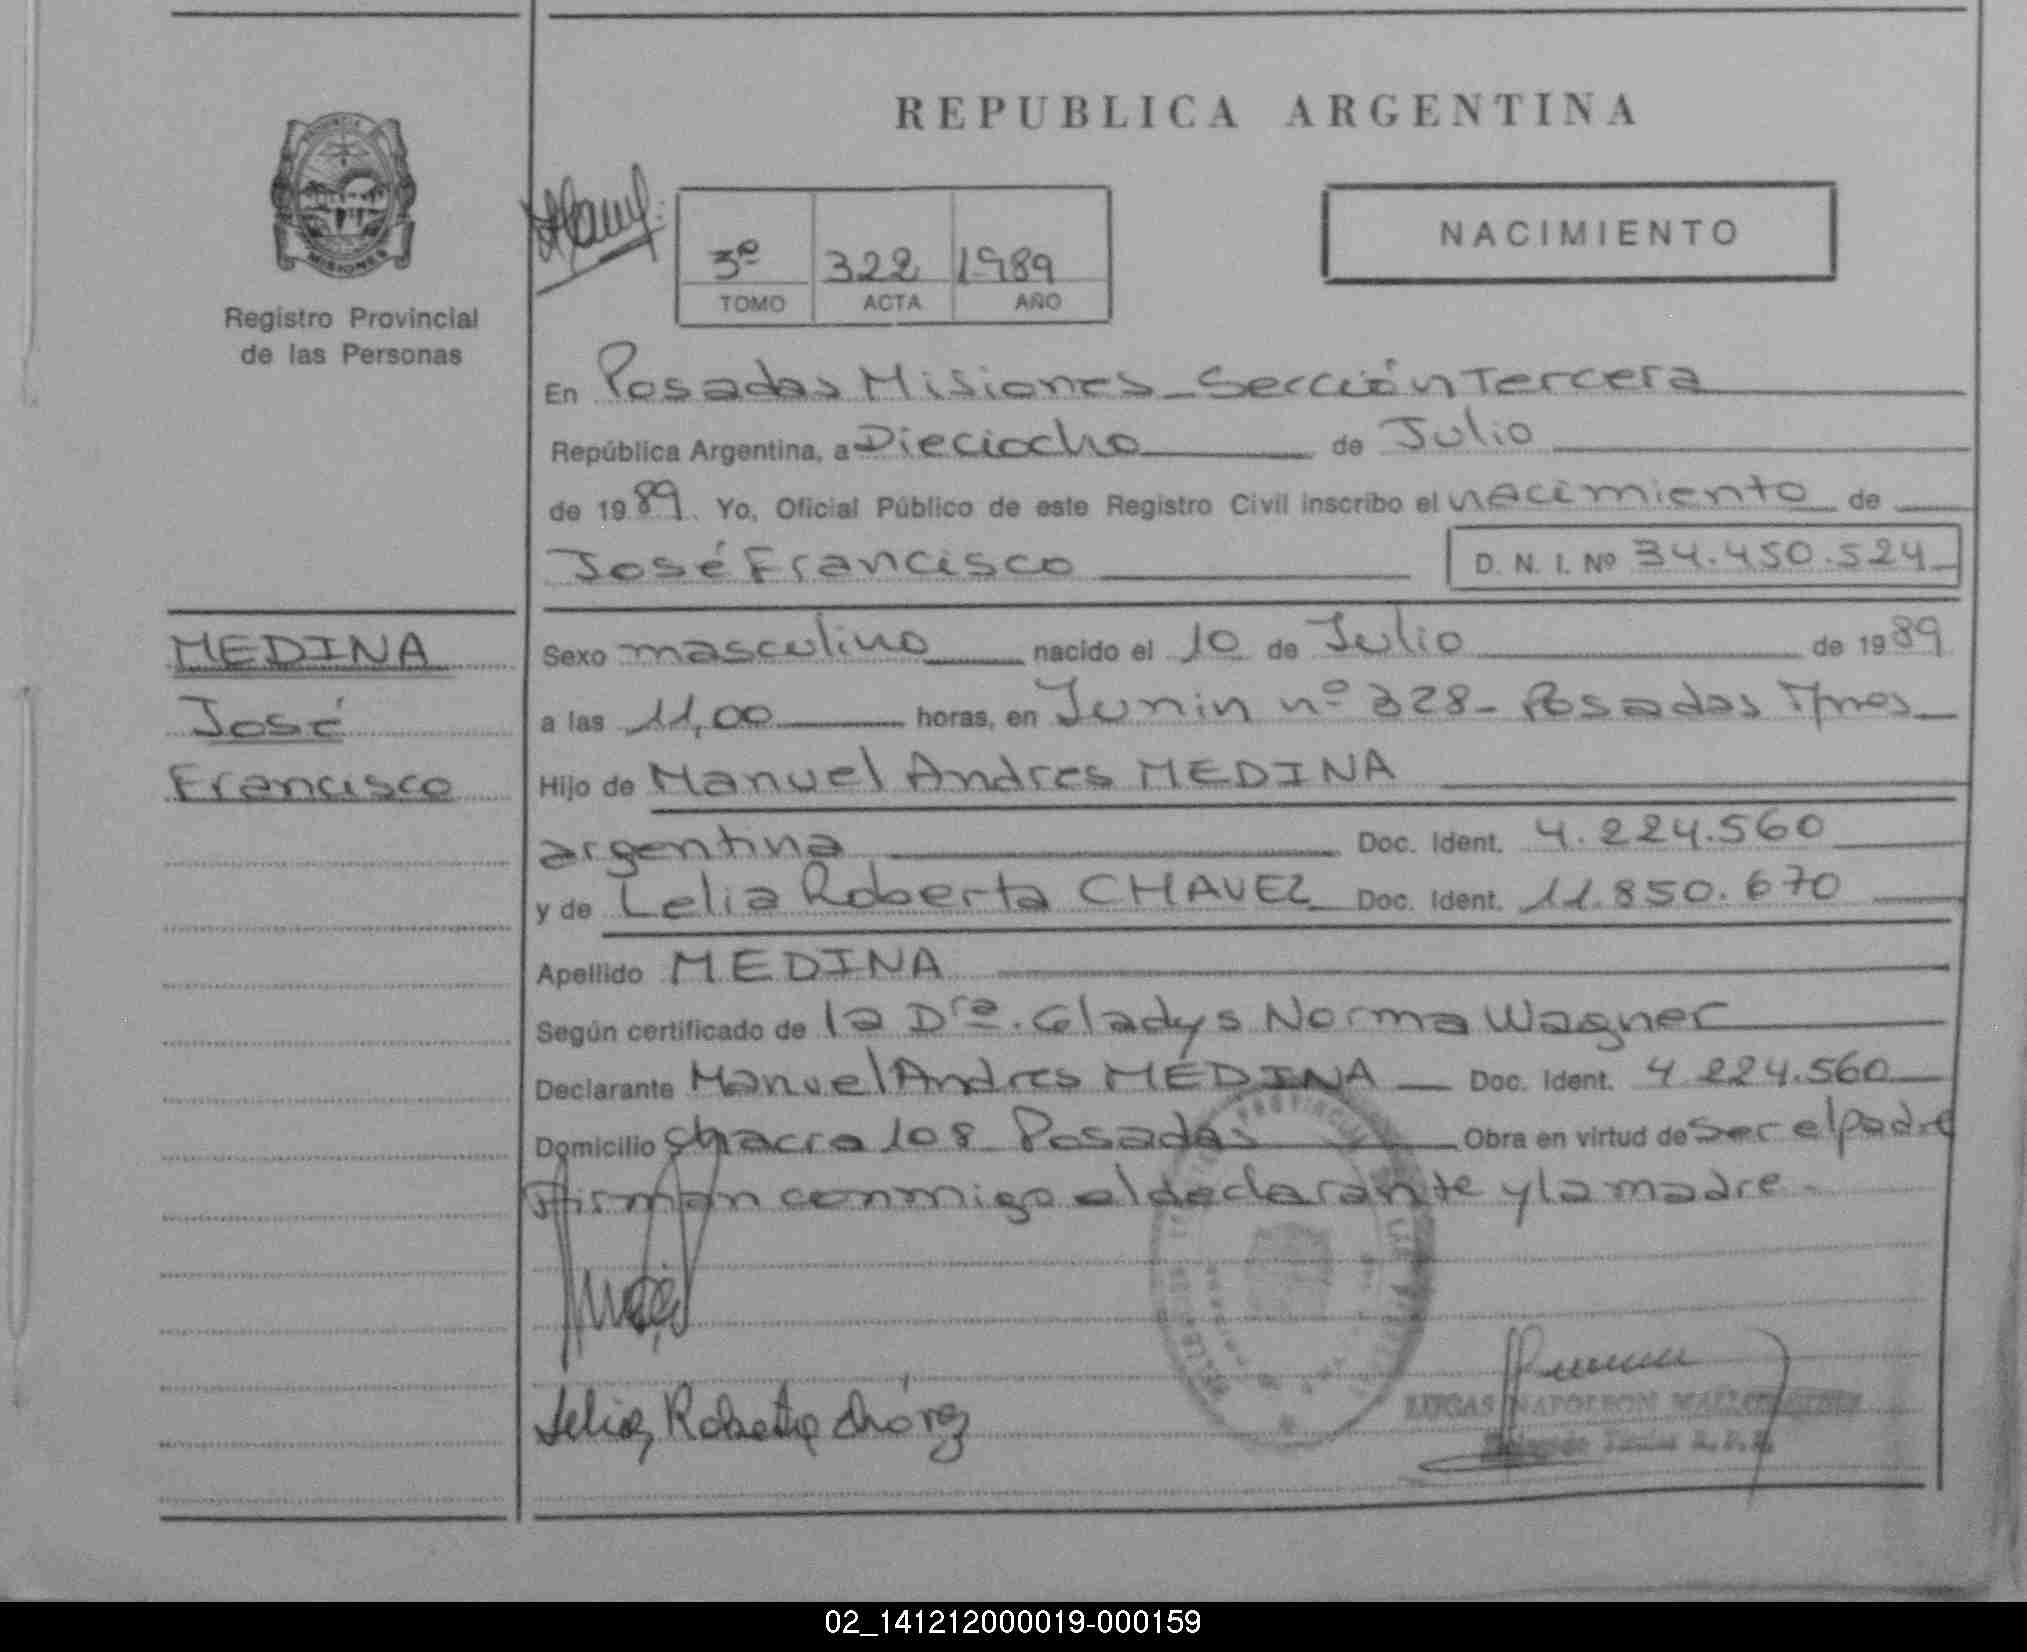 REPUBLICA ARGENTINA
PROVINCIA
MISIONES
Registro Provincial
de las Personas
3º 322 1989
TOMO ACTA AÑO
NACIMIENTO
En Posadas Misiones - Sección Tercera
República Argentina, a Dieciocho de Julio
de 1989. Yo, Oficial Público de este Registro Civil inscribo el nacimiento de
José Francisco D. N. I. Nº 34.450.524
MEDINA
José
Francisco
Sexo masculino nacido el 10 de Julio de 1989
a las 11,00 horas, en Junin nº 328 - Posadas Mnes
Hijo de Manuel Andres MEDINA
argentina Doc. Ident. 4.224.560
y de Lelia Roberta CHAVEZ Doc. Ident. 11.850.670
Apellido MEDINA
Según certificado de la Dra. Gladys Norma Wagner
Declarante Manuel Andres MEDINA Doc. Ident. 4.224.560
Domicilio chacra 108 Posadas Obra en virtud de ser el padre
firman conmigo el declarante y la madre.
Lelia Roberta Chávez
LUCAS NAPOLEON
02_141212000019-000159